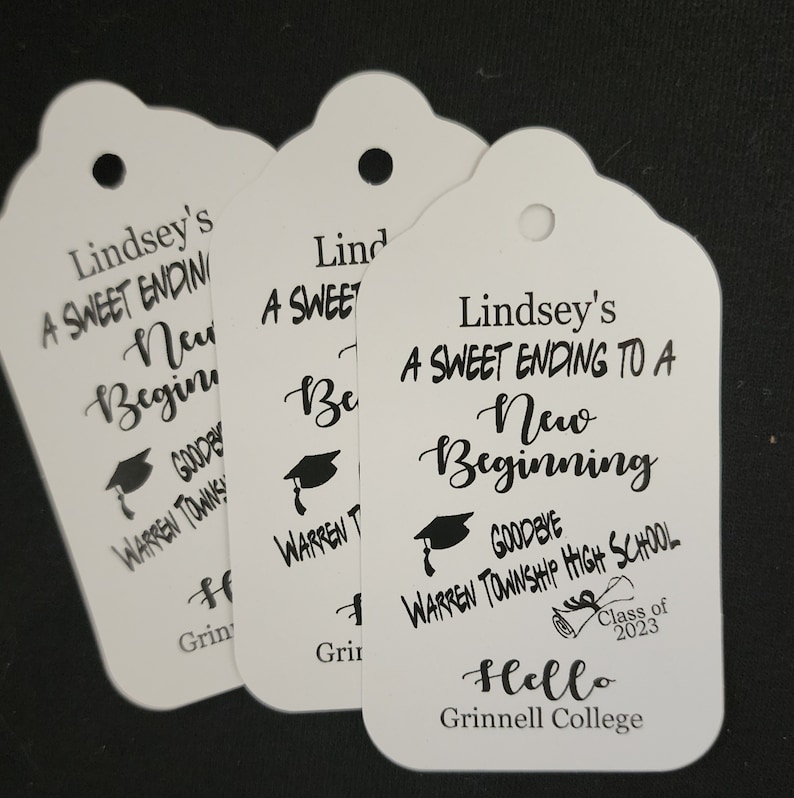 Lindsey's
A SWEET ENDING
New
Beginn
GOODBYE
WARREN TOWNSH
H
Grinn
Lind
A SWEET
Be
WARREN T
H
Grin
Lindsey's
A SWEET ENDING TO A
New
Beginning
GOODBYE
WARREN TOWNSHIP HIGH SCHOOL
Class of
2023
Hello
Grinnell College